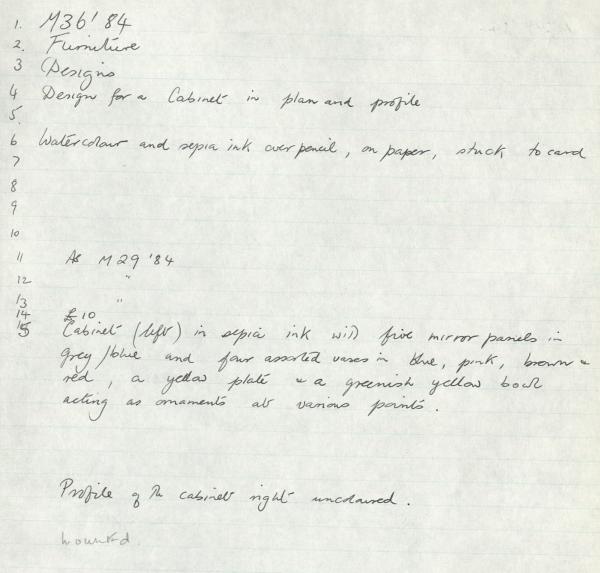 1. M36' 84
2. Furniture
3 Designs
4 Design for a Cabinet in plan and profile
5.
6 Watercolour and sepia ink over pencil, on paper, stuck to card
7
8
9
10
11 As M29 '84
12 "
13 "
14 £10
15 Cabinet (left) in sepia ink with five mirror panels in
grey/blue and four assorted vases in blue, pink, brown &
red, a yellow plate & a greenish yellow bowl
acting as ornaments at various points.
Profile of the cabinet right uncoloured.
mounted.